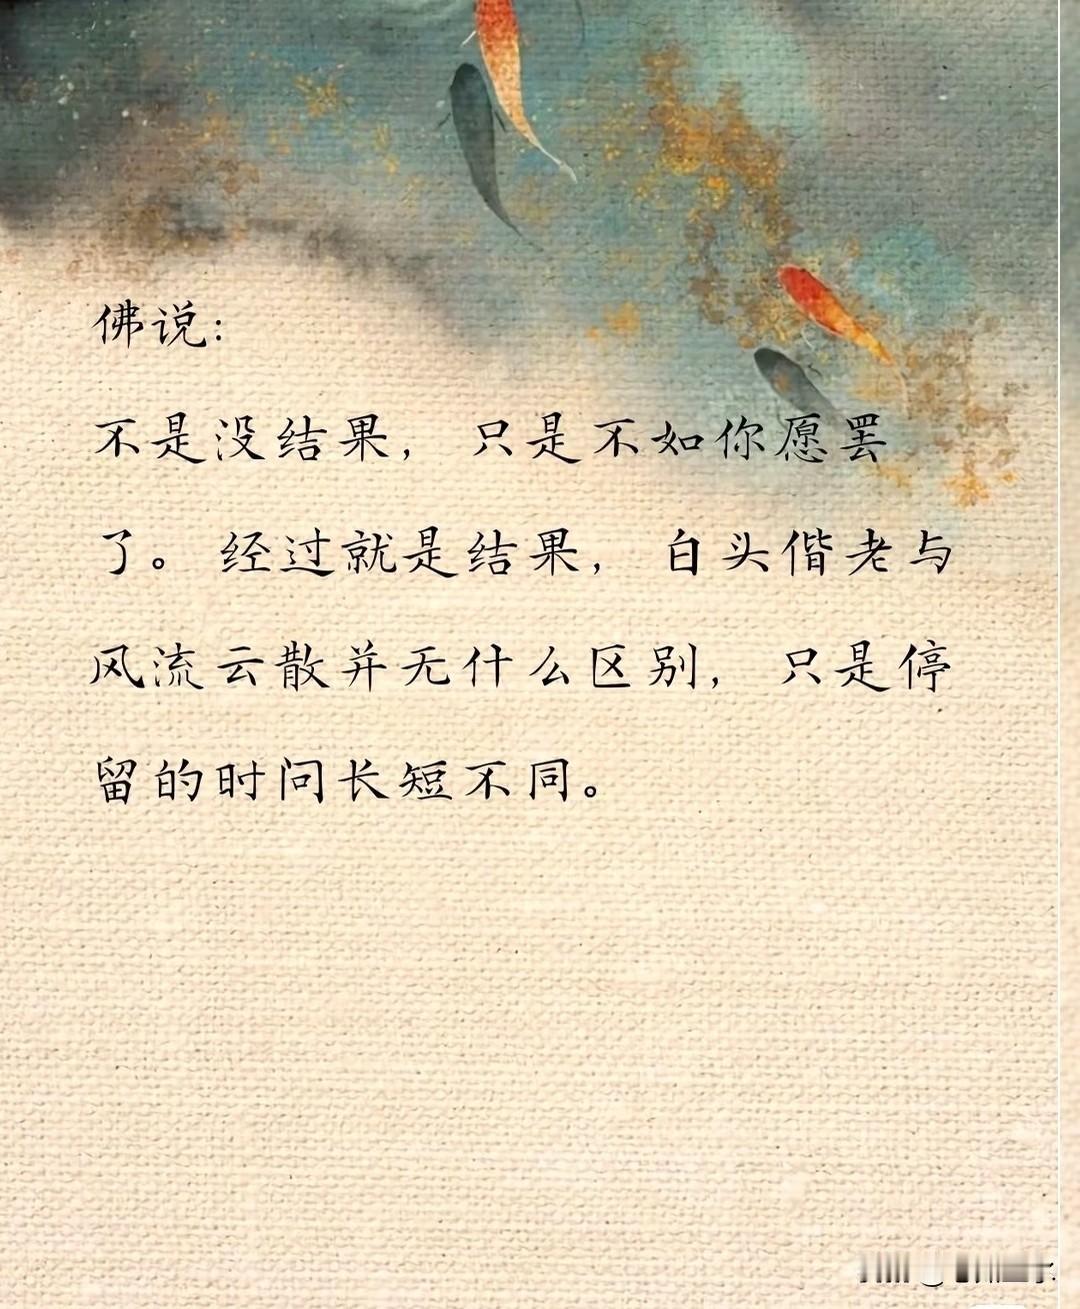 佛说:
不是没结果, 只是不如你愿罢
了。 经过就是结果, 白头偕老与
风流云散并无什么区别, 只是停
留的时问长短不同。